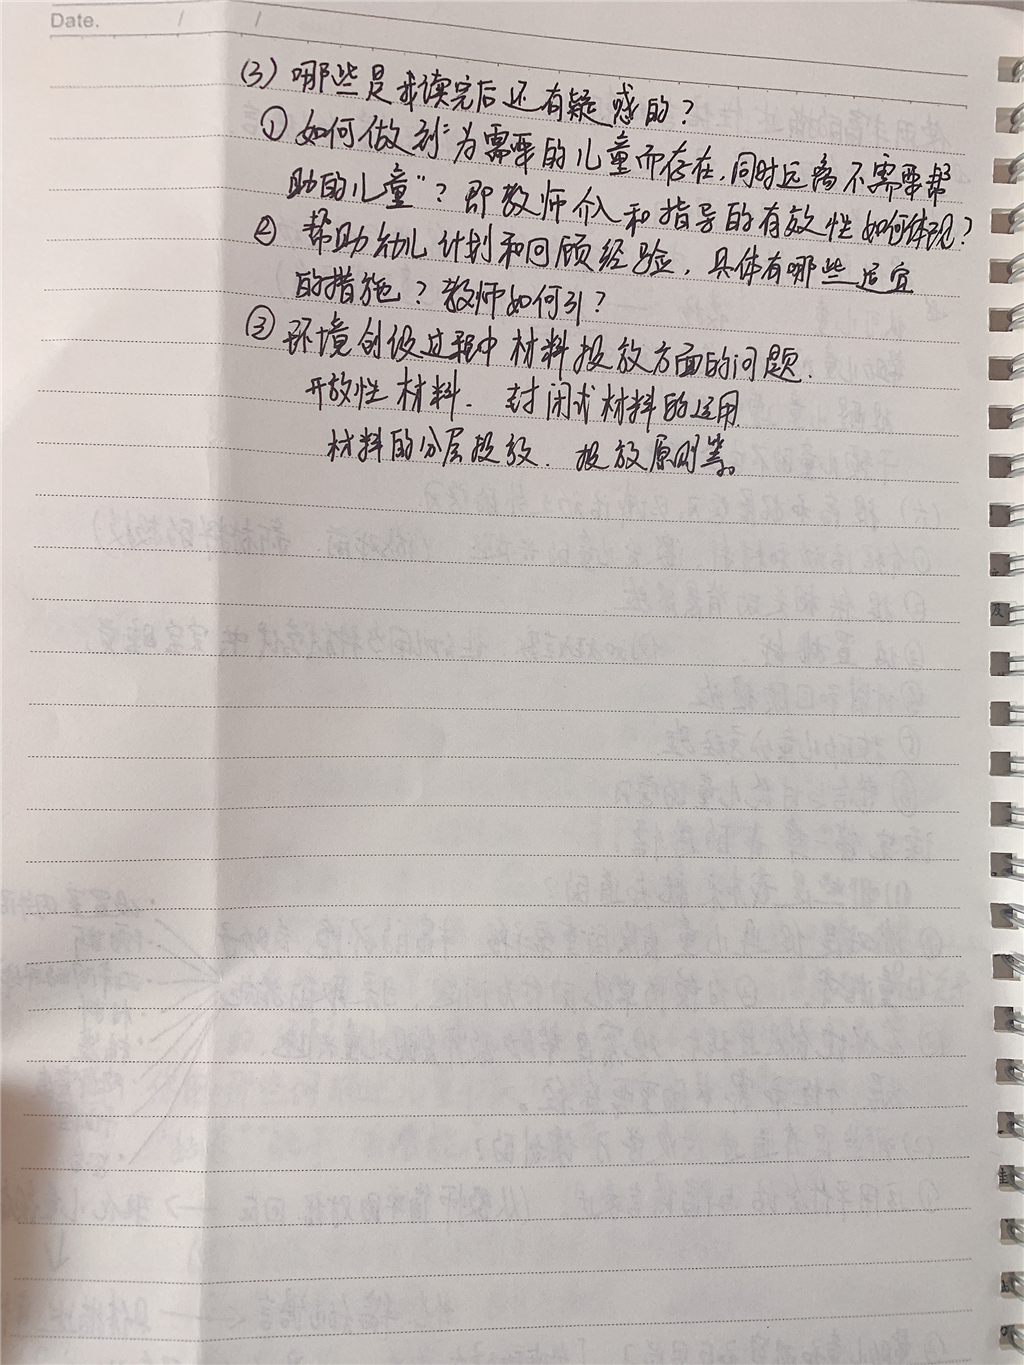 Date. / /
(3) 哪些是我读完后还有疑惑的？
① 如何做到"为需要的儿童而存在，同时远离不需要帮
助的儿童"？即教师介入和指导的有效性如何体现？
② 帮助幼儿计划和回顾经验，具体有哪些适宜
的措施？教师如何引？
③ 环境创设过程中材料投放方面的问题.
开放性材料. 封闭式材料的运用
材料的分层投放. 投放原则等。